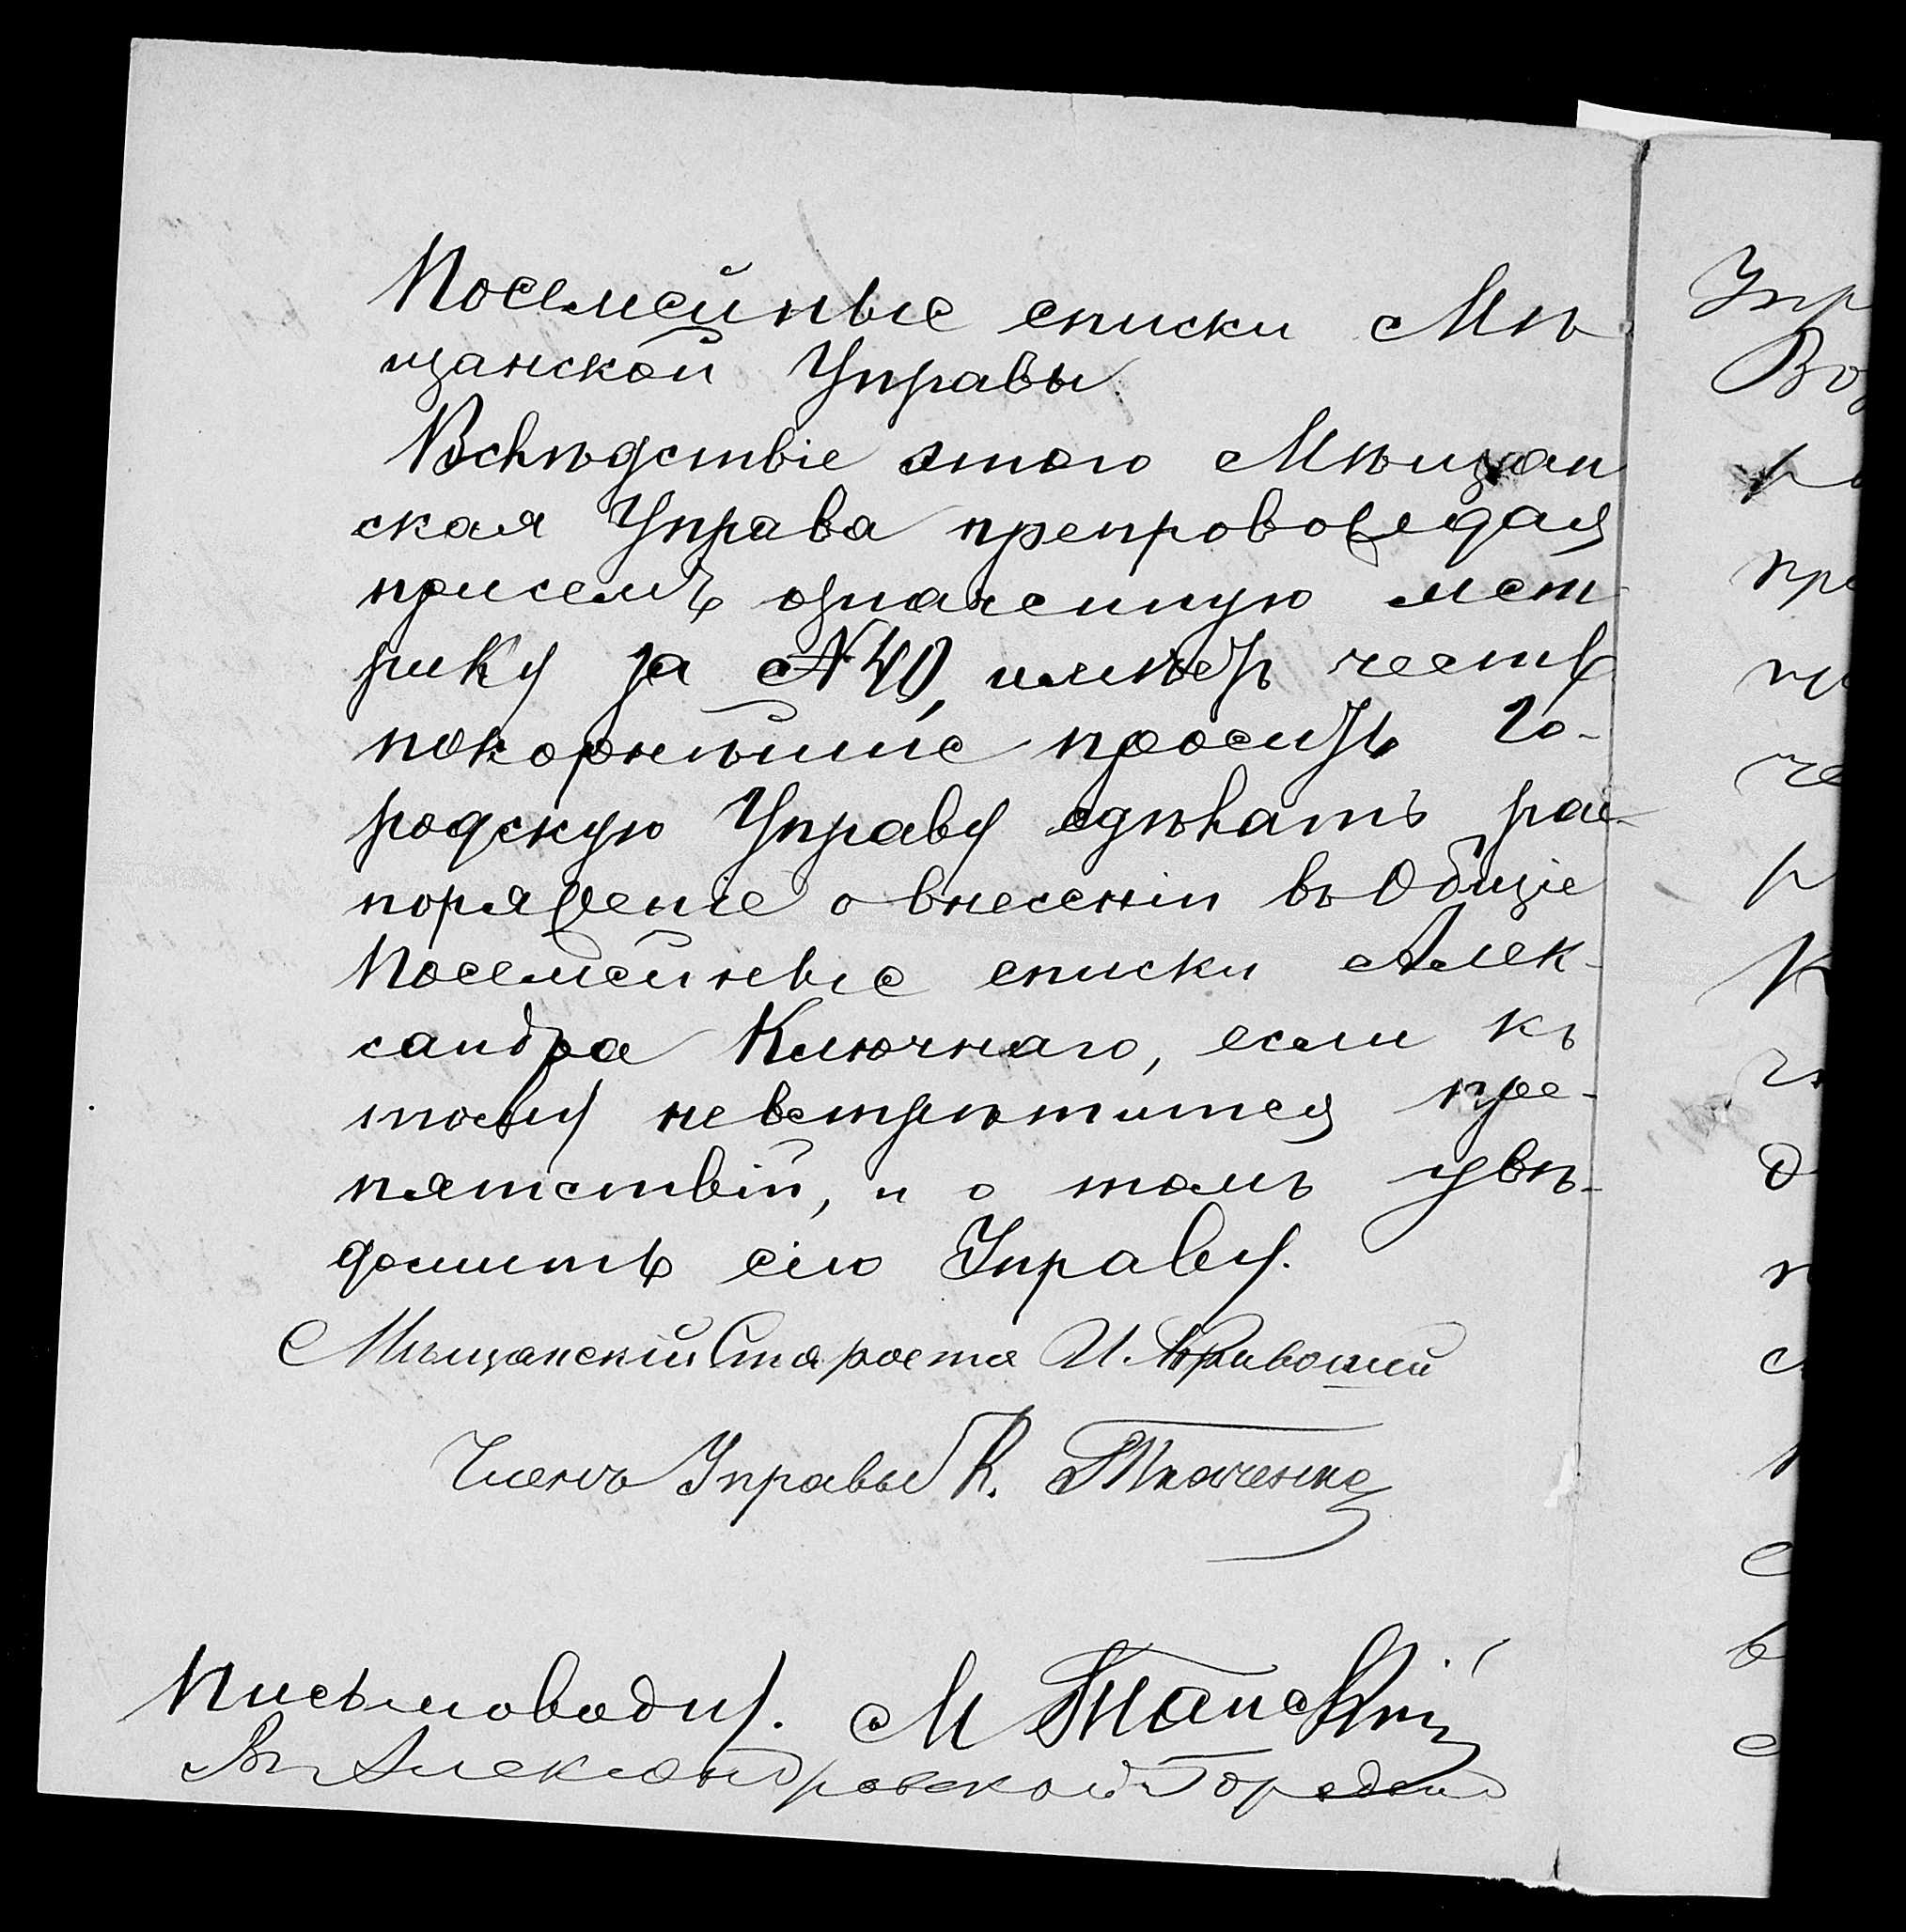 Посемейные списки Мѣ
щанской Управы.
Вслѣдствіе этого Мѣщан
ская Управа препровождая
присемъ означенную мет
рику за №40, имѣетъ честь
покорнѣйше проситъ Го-
родскую Управу сдѣлать рас-
поряженіе о внесеніи въ Общіе
Посемейные списки Алек-
сандра Ключнаго, если къ
тому невстрѣтится пре-
пятствій, и о томъ увѣ-
домить сію Управу.
Мѣщанскій Староста И. Кривошей
Членъ Управы К. Ткаченко
Письмоводит. М
Въ Александровской Городск
Упр
Во